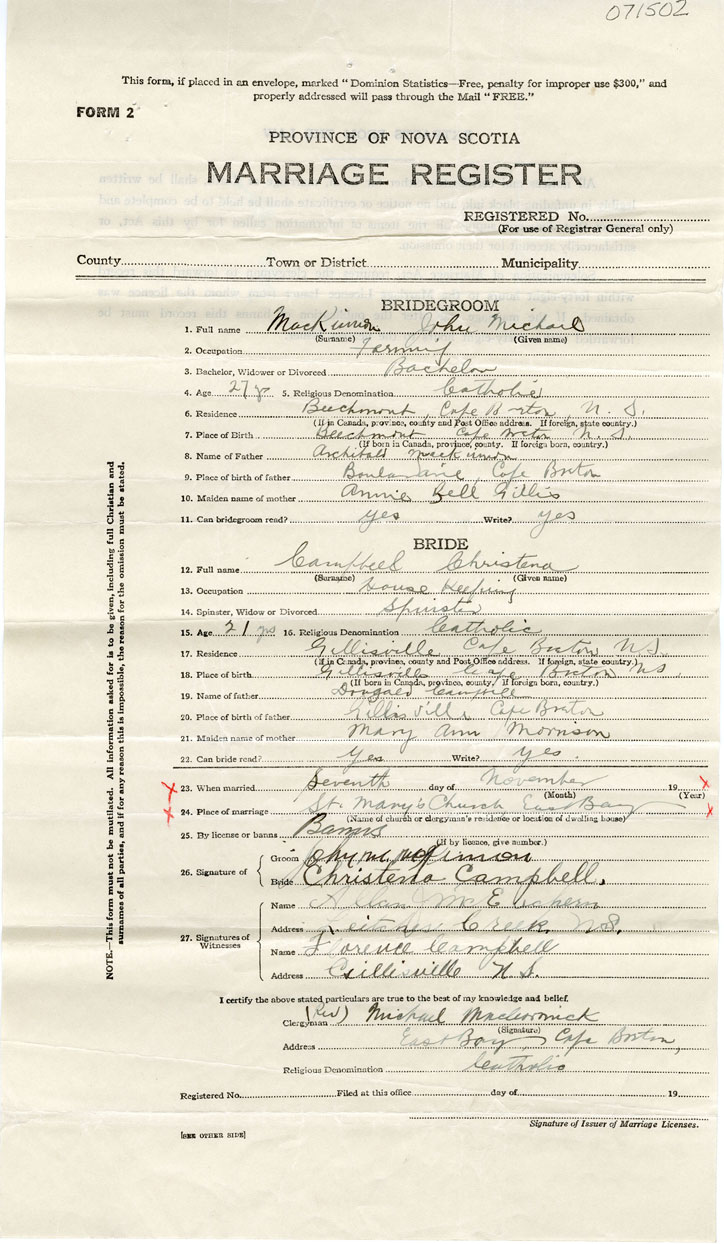 071502
This form, if placed in an envelope, marked "Dominion Statistics—Free, penalty for improper use $300," and
properly addressed will pass through the Mail "FREE."
FORM 2
PROVINCE OF NOVA SCOTIA
MARRIAGE REGISTER
REGISTERED No.
(For use of Registrar General only)
County Town or District Municipality
BRIDEGROOM
1. Full name MacKinnon John Michael
(Surname) (Given name)
2. Occupation Farming
3. Bachelor, Widower or Divorced Bachelor
4. Age 27 yrs 5. Religious Denomination Catholic
6. Residence Beechmont, Cape Breton, N. S.
(If in Canada, province, county and Post Office address. If foreign, state country.)
7. Place of Birth Beechmont Cape Breton N. S.
(If born in Canada, province, county. If foreign born, country.)
8. Name of Father Archibald MacKinnon
9. Place of birth of father Boularderie, Cape Breton
10. Maiden name of mother Annie Bell Gillis
11. Can bridegroom read? yes Write? yes
BRIDE
12. Full name Campbell Christena
(Surname) (Given name)
13. Occupation House Keeping
14. Spinster, Widow or Divorced Spinster
15. Age 21 yrs 16. Religious Denomination Catholic
17. Residence Gillisville Cape Breton N.S.
(If in Canada, province, county and Post Office address. If foreign, state country.)
18. Place of birth Gillisville Cape Breton N.S.
(If born in Canada, province, county. If foreign born, country.)
19. Name of father Dougald Campbell
20. Place of birth of father Gillisville, Cape Breton
21. Maiden name of mother Mary Ann Morrison
22. Can bride read? Yes Write? yes.
23. When married Seventh day of November 19
(Month) (Year)
24. Place of marriage St. Mary's Church East Bay
(Name of church or clergyman's residence or location of dwelling house)
25. By license or banns Banns
(If by licence, give number.)
26. Signature of Groom John M. McKinnon
Bride Christena Campbell.
27. Signatures of Witnesses Name McEachern
Address Creek N.S.
Name Florence Campbell
Address Gillisville N.S.
I certify the above stated particulars are true to the best of my knowledge and belief.
Clergyman (Rev) Michael MacCormick
(Signature)
Address East Bay, Cape Breton,
Religious Denomination Catholic
Registered No. Filed at this office day of 19
Signature of Issuer of Marriage Licenses.
[SEE OTHER SIDE]
NOTE.—This form must not be mutilated. All information asked for is to be given, including full Christian and
surnames of all parties, and if for any reason this is impossible, the reason for the omission must be stated.